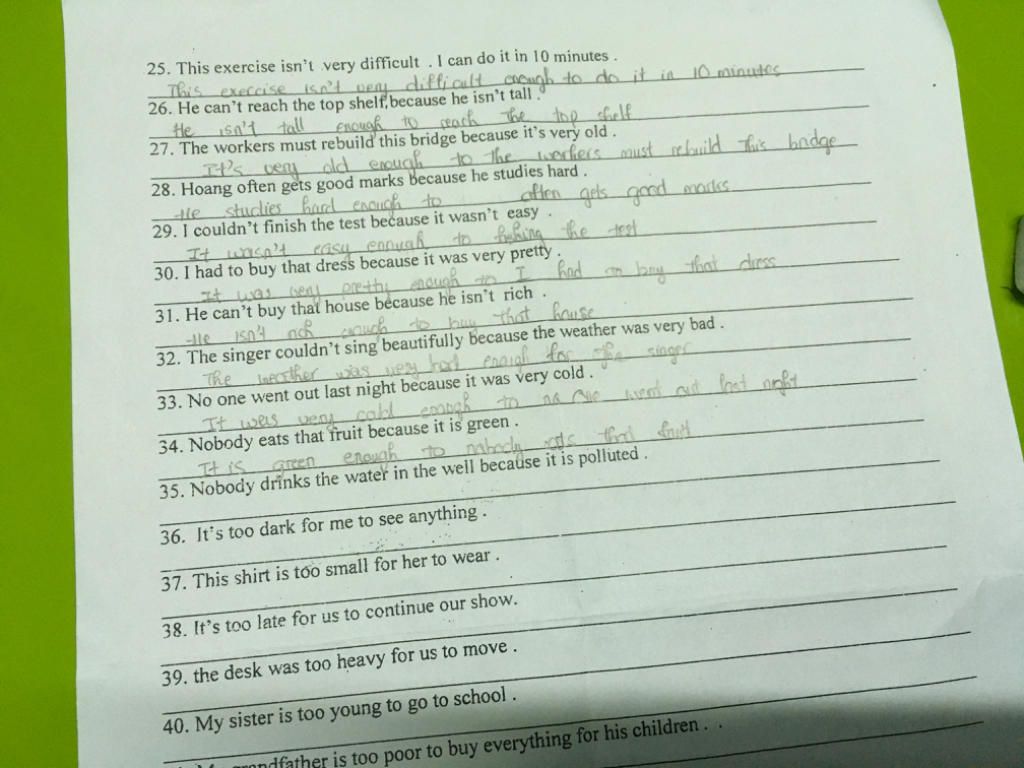 25. This exercise isn't very difficult . I can do it in 10 minutes .
This exercise isn't very difficult enough to do it in 10 minutes
26. He can't reach the top shelf, because he isn't tall .
He isn't tall enough to reach the top shelf
27. The workers must rebuild this bridge because it's very old .
It's very old enough to the workers must rebuild this bridge
28. Hoang often gets good marks because he studies hard .
He studies hard enough to often gets good marks
29. I couldn't finish the test because it wasn't easy .
It wasn't easy enough to the test
30. I had to buy that dress because it was very pretty .
It was very pretty enough to I had to buy that dress
31. He can't buy that house because he isn't rich .
He isn't rich enough to buy that house
32. The singer couldn't sing beautifully because the weather was very bad .
The weather was very enough for the singer
33. No one went out last night because it was very cold .
It was very cold enough to no one went out last night
34. Nobody eats that fruit because it is green .
It is green enough to nobody eats that fruit
35. Nobody drinks the water in the well because it is polluted .
36. It's too dark for me to see anything .
37. This shirt is too small for her to wear .
38. It's too late for us to continue our show.
39. the desk was too heavy for us to move .
40. My sister is too young to go to school .
is too poor to buy everything for his children . .